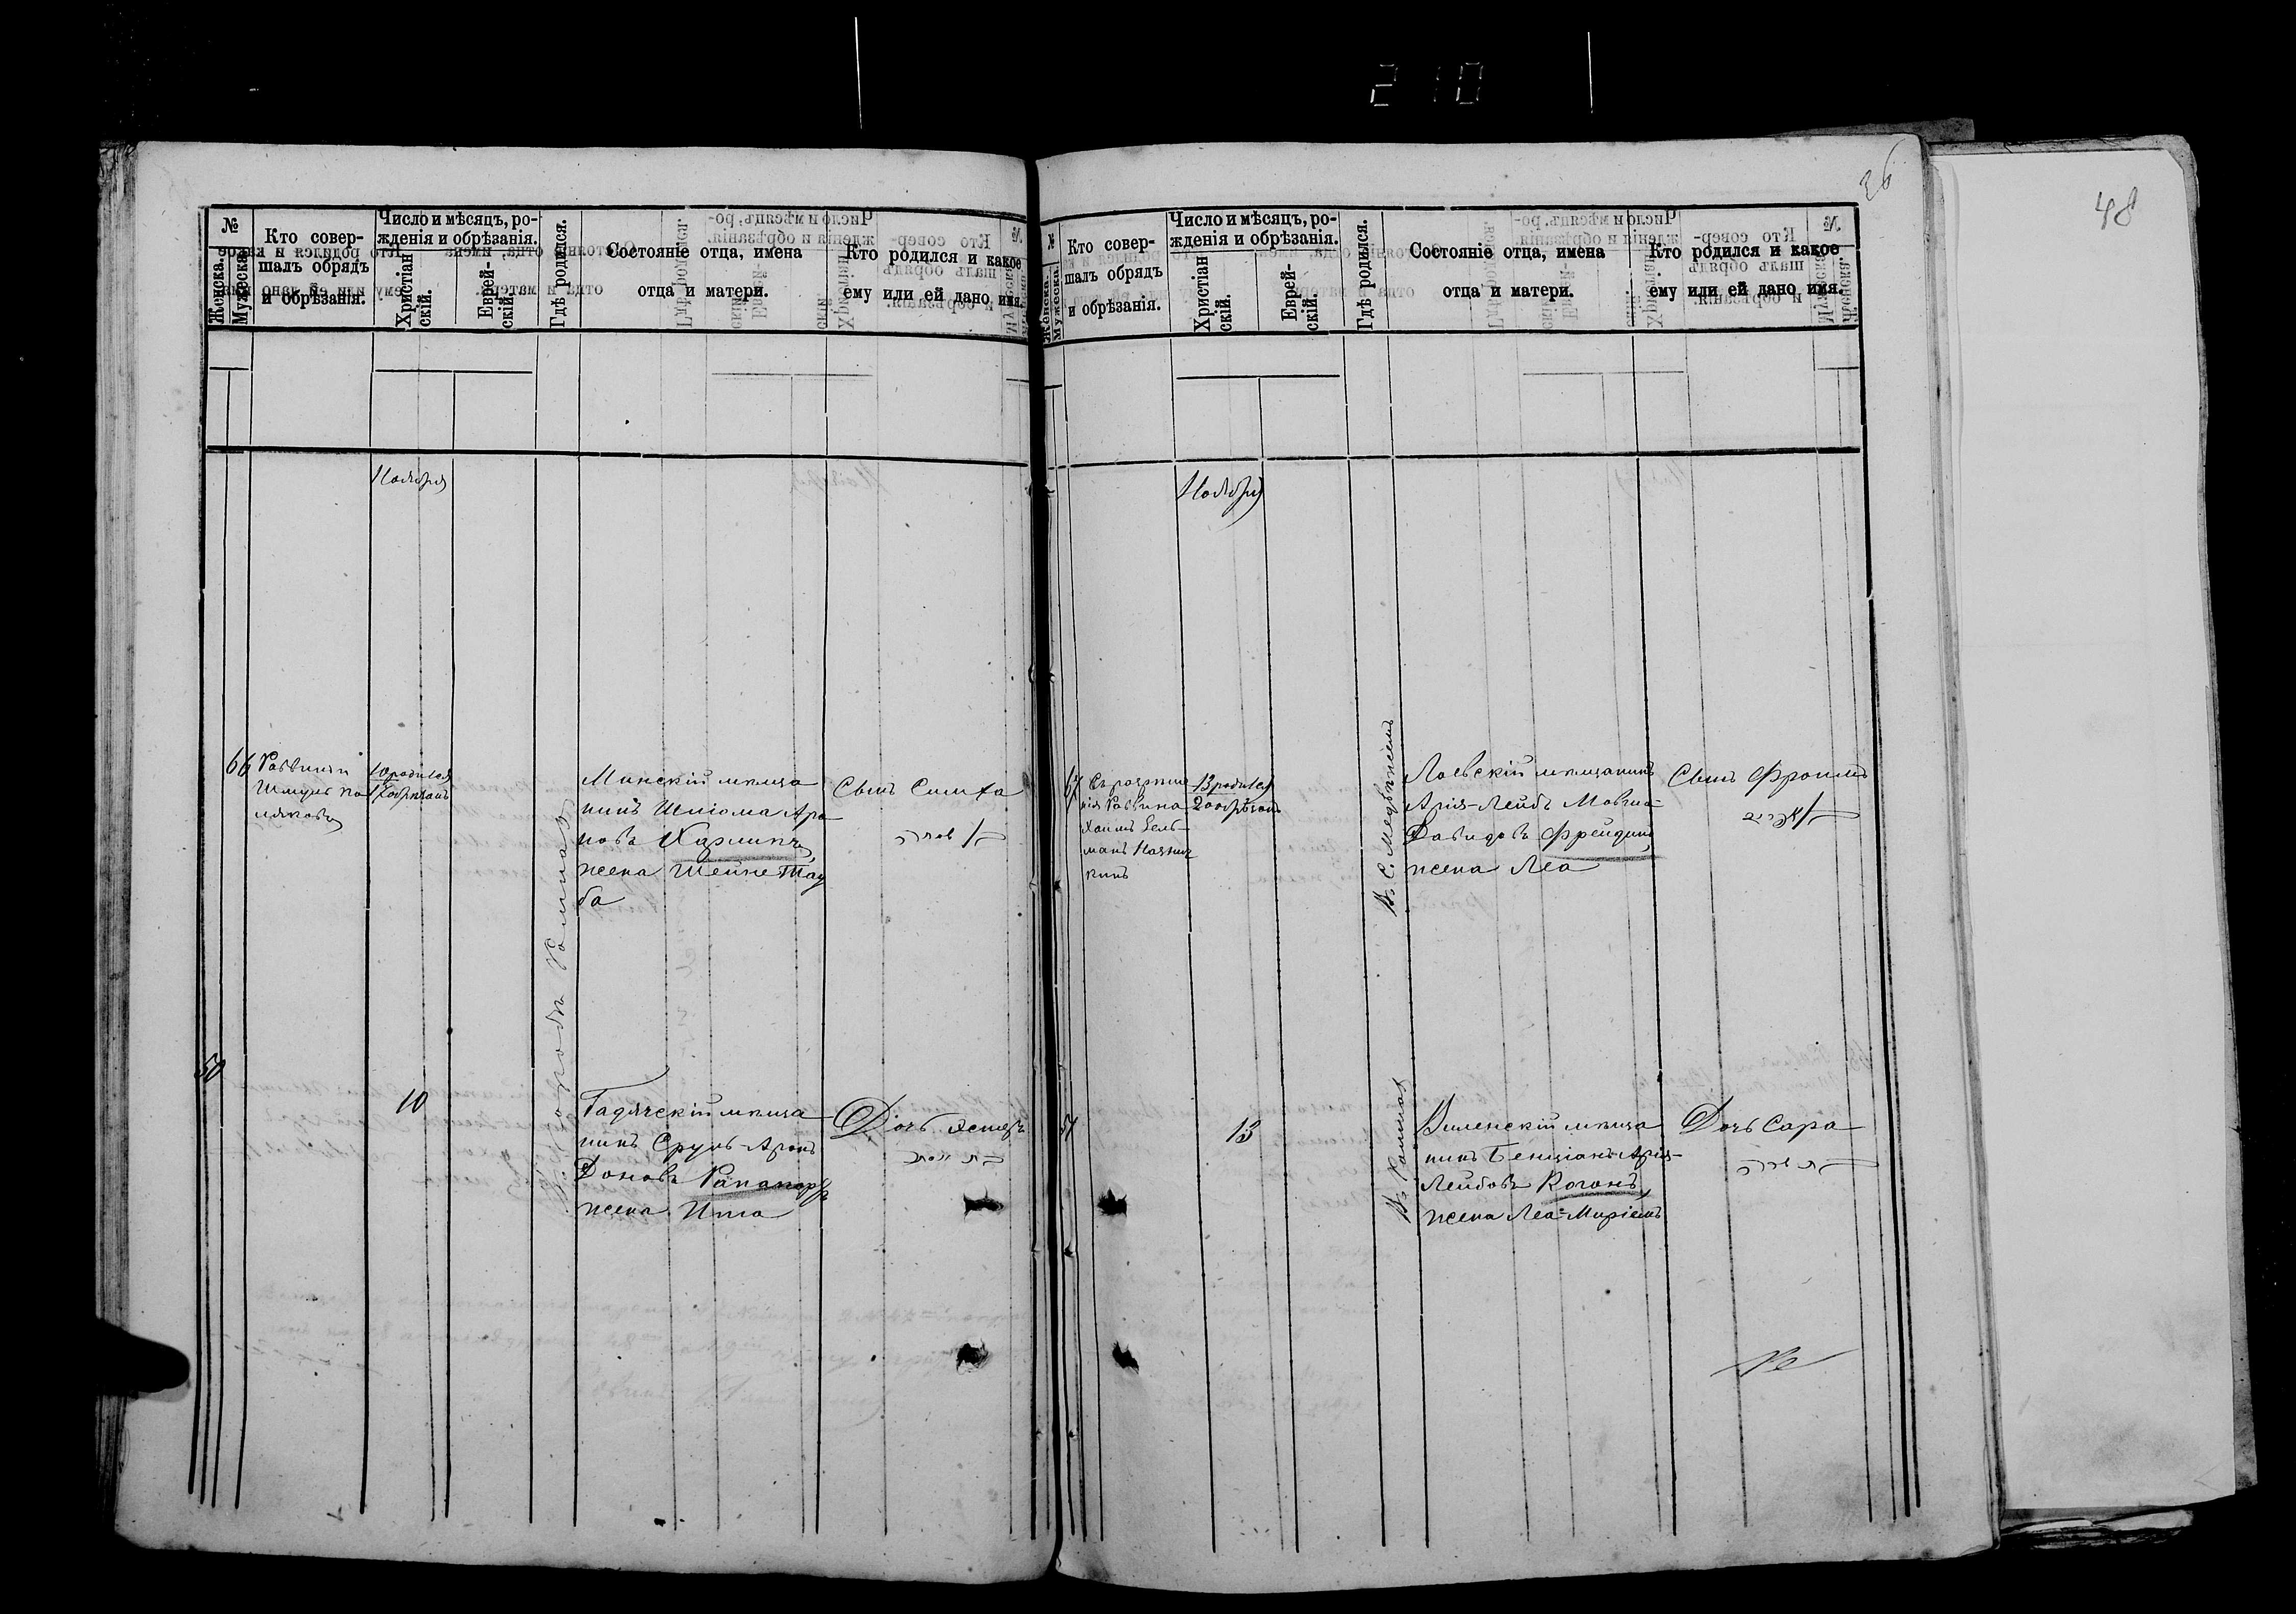 210
36
48
№
Женска.
Мужеска.
Кто совер-
шалъ обрядъ
и обрѣзанія.
Число и мѣсяцъ, ро-
жденія и обрѣзанія.
Христіан
скій.
Еврей-
скій.
Гдѣ родился.
Состояніе отца, имена
отца и матери.
Кто родился и какое
ему или ей дано имя.
Ноября
66
Раввинъ
Шмуръ По
ляковъ
10 родился
17 обрѣзанъ
Въ городѣ Ромнахъ
Минскій мѣща
нинъ Шліома Аро
новъ Карликъ,
жена Шейне Тау
ба
Сынъ Симха
50
10
Гадячскій мѣща
нинъ Сруль-Аронъ
Доновъ Рапапортъ
жена Итта
Дочь Эстеръ
№
Женска.
Мужеска.
Кто совер-
шалъ обрядъ
и обрѣзанія.
Число и мѣсяцъ, ро-
жденія и обрѣзанія.
Христіан
скій.
Еврей-
скій.
Гдѣ родился.
Состояніе отца, имена
отца и матери.
Кто родился и какое
ему или ей дано имя.
Ноября
67
Съ разрѣше
нія Раввина
Хаимъ Зель-
манъ
13 родился
20 обрѣзанъ
Въ С. Медвѣжемъ
Лоевскій мѣщанинъ
Арія-Лейбъ Мовша-
Давидовъ Фрейдинъ,
жена Леа
Сынъ Фроимъ
51
13
Въ Ромнахъ
Виленскій мѣща
нинъ Бенціанъ Арія-
Лейбовъ Коганъ,
жена Леа-Миріамъ
Дочь Сара